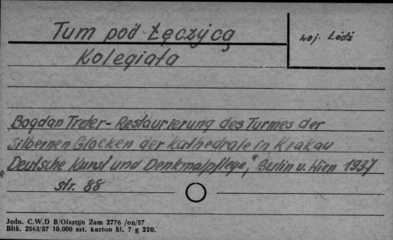 Tum pod Łęczycą
woj. Łódź
Kolegiata
Bogdan Treter - Restaurierung des Turmes der
Silbernen Glocken der Kathedrale in Krakau
„Deutsche Kunst und Denkmalpflege," Berlin u. Wien 1937
str. 88
Jedn. C.W.D B/Olsztyn Zam 2776 /on/57
Bltk. 2563/57 10.000 szt. karton kl. 7 g 220.